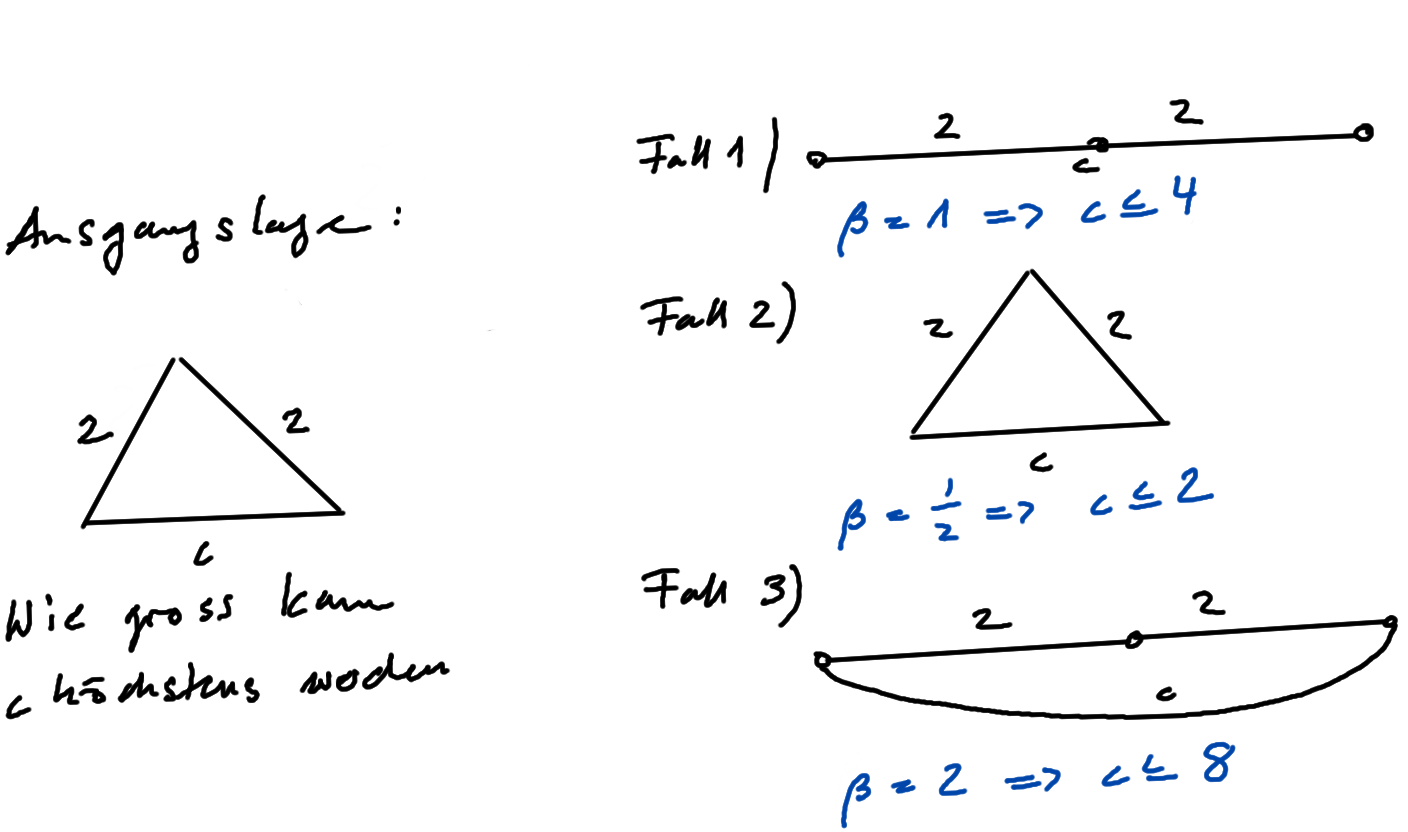 Ausgangslage:
2
2
c
Wie gross kann
c höchstens werden
Fall 1)
2
2
c
β = 1 => c ≤ 4
Fall 2)
2
2
c
β = 1/2 => c ≤ 2
Fall 3)
2
2
c
β = 2 => c ≤ 8